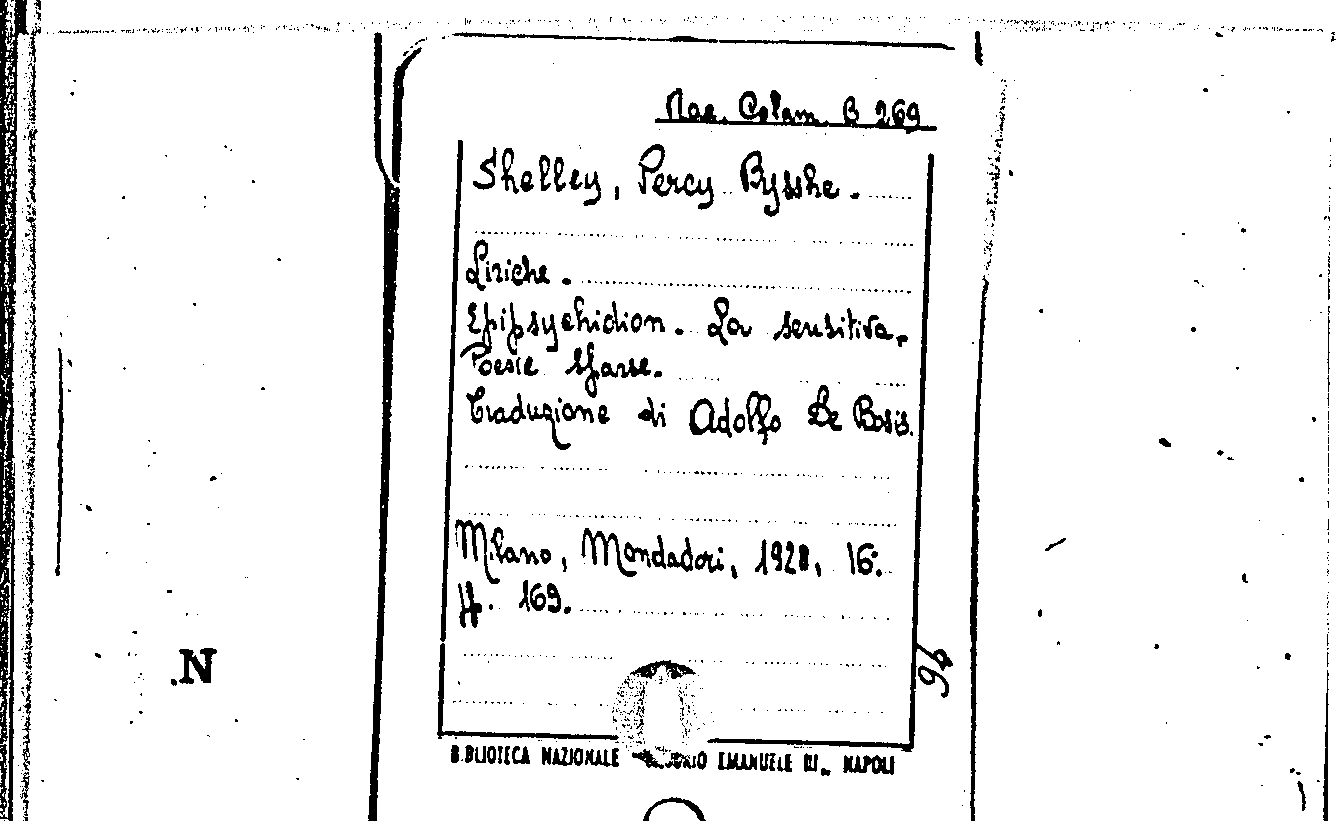 Rac. Colam. B 269
Shelley, Percy Bysshe.
Liriche.
Epipsychidion. La sensitiva.
Poesie sparse.
Traduzione di Adolfo De Bosis.
Milano, Mondadori, 1928, 16°.
pp. 169.
96
N.
BIBLIOTECA NAZIONALE EMANUELE III - NAPOLI